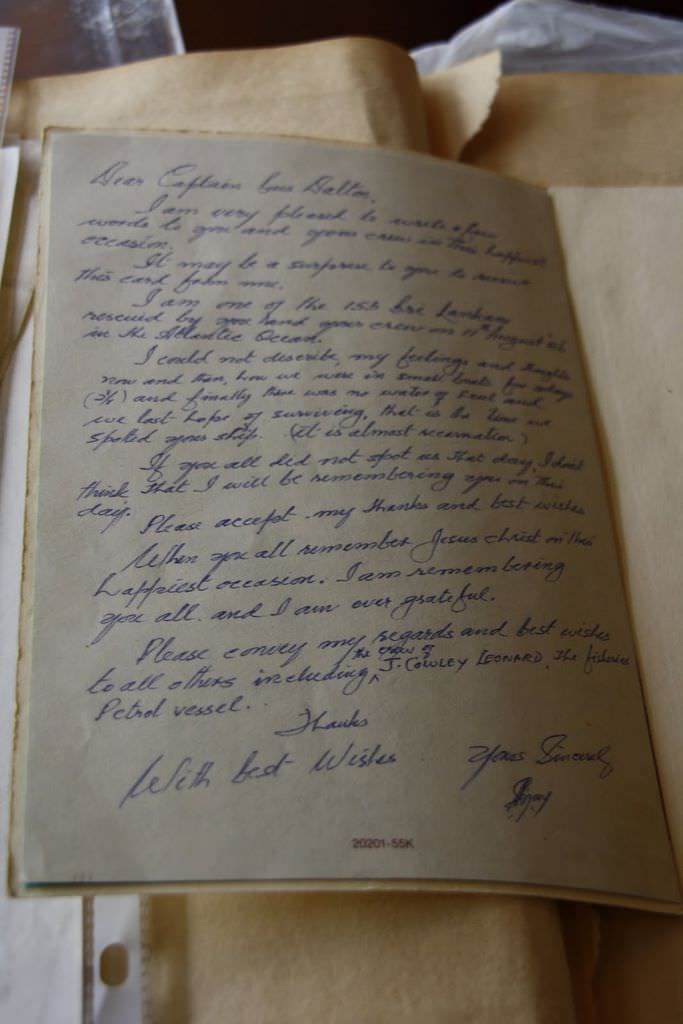 Dear Captain Gus Dalton,
I am very pleased to write a few
words to you and your crew in this happiest
occasion.
It may be a surprise to you to receive
this card from me.
I am one of the 155 Sri Lankans
rescued by you and your crew on 11th August '86
in the Atlantic Ocean.
I could not describe, my feelings and thoughts
now and then, how we were in small boats for
(2½) and finally there was no water or food and
we lost hope of surviving, that is the time we
spoted your ship. (it is almost recarnation)
If you all did not spot us that day, I don't
think that I will be remembering you on this
day.
Please accept my thanks and best wishes
When you all remember Jesus Christ on this
happiest occasion. I am remembering
you all. and I am ever grateful.
Please convey my regards and best wishes
to all others including the crew of J. COWLEY LEONARD, the fisheries
Petrol vessel.
Thanks
With best Wishes Yours Sincerely
20201-55K